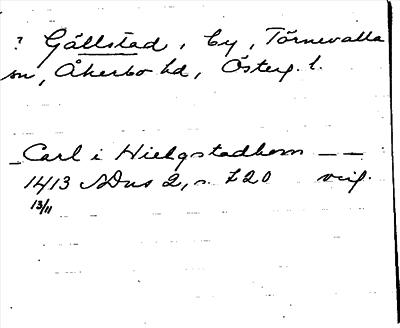 ? Gällstad, by, Törnevalla
sn, Åkerbo hd, Österg. l.
Carl i Hielgstadhem — —
1413 SDns 2, s. 720 orig.
13/11